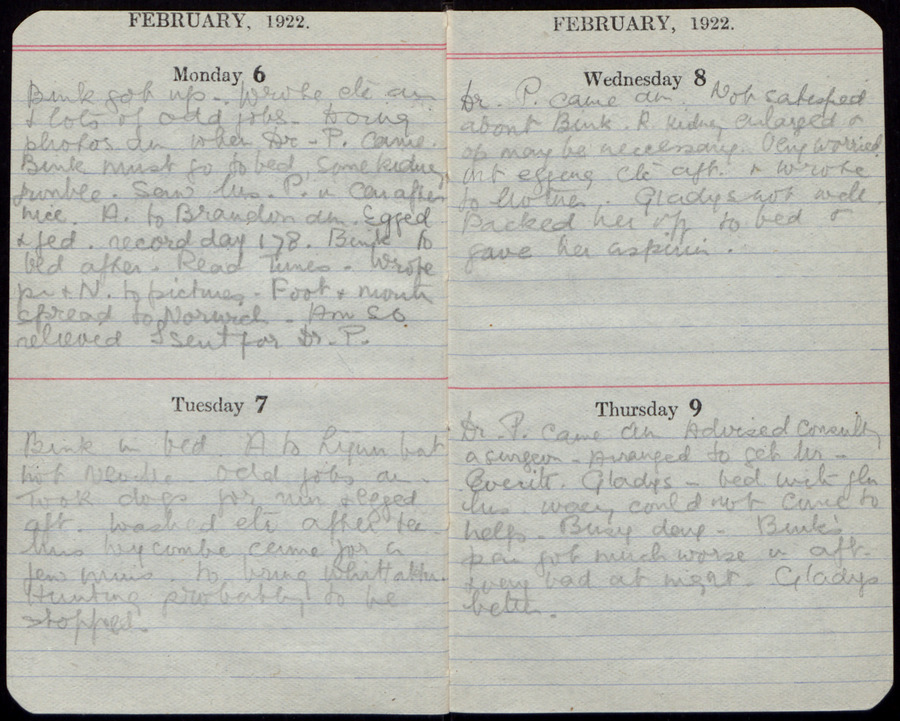 FEBRUARY, 1922.
Monday 6
Bink got up - wrote etc am
& lots of odd jobs - Doing
photos am when Dr. P. came.
Bink must go to bed, some kidney
trouble. Saw Mrs. P. in car after
nice. A. to Brandon am. Egged
& fed. record day 178. Bink to
bed after. Read Times - Wrote
pm & N. to pictures - Foot & mouth
spread to Norwich - Am so
relieved I sent for Dr. P.
Tuesday 7
Bink in bed. A to Lynn but
not odd jobs am.
Took dogs for run & egged
aft. washed etc after tea
Mrs Wycombe came for a
few mins. to bring
Hunting probably to be
stopped.
FEBRUARY, 1922.
Wednesday 8
Dr. P. came am. Not satisfied
about Bink. R. kidney enlarged &
op may be necessary. Very worried.
egging etc aft. & wrote
to Mother. Gladys not well.
Packed her off to bed &
gave her aspirin.
Thursday 9
Dr. P. came am Advised consulting
a surgeon - Arranged to get Mr -
Everitt. Gladys - bed with flu
Mrs. could not come to
help. Busy day - Bink's
pain got much worse in aft.
very bad at night. Gladys
better.